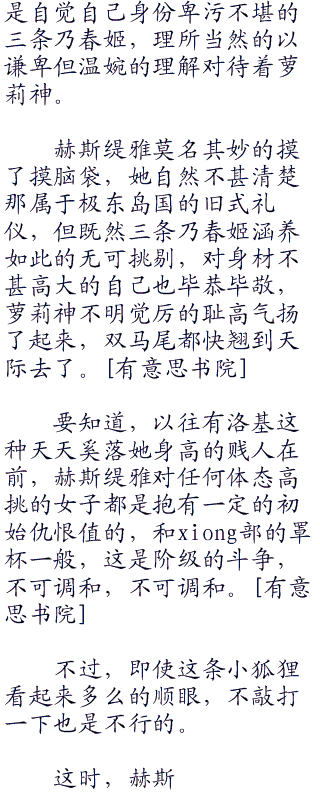 是自觉自己身份卑污不堪的
三条乃春姬，理所当然的以
谦卑但温婉的理解对待着萝
莉神。
赫斯缇雅莫名其妙的摸
了摸脑袋，她自然不甚清楚
那属于极东岛国的旧式礼
仪，但既然三条乃春姬涵养
如此的无可挑剔，对身材不
甚高大的自己也毕恭毕敬，
萝莉神不明觉厉的耻高气扬
了起来，双马尾都快翘到天
际去了。[有意思书院]
要知道，以往有洛基这
种天天奚落她身高的贱人在
前，赫斯缇雅对任何体态高
挑的女子都是抱有一定的初
始仇恨值的，和xiong部的罩
杯一般，这是阶级的斗争，
不可调和，不可调和。[有意
思书院]
不过，即使这条小狐狸
看起来多么的顺眼，不敲打
一下也是不行的。
这时，赫斯